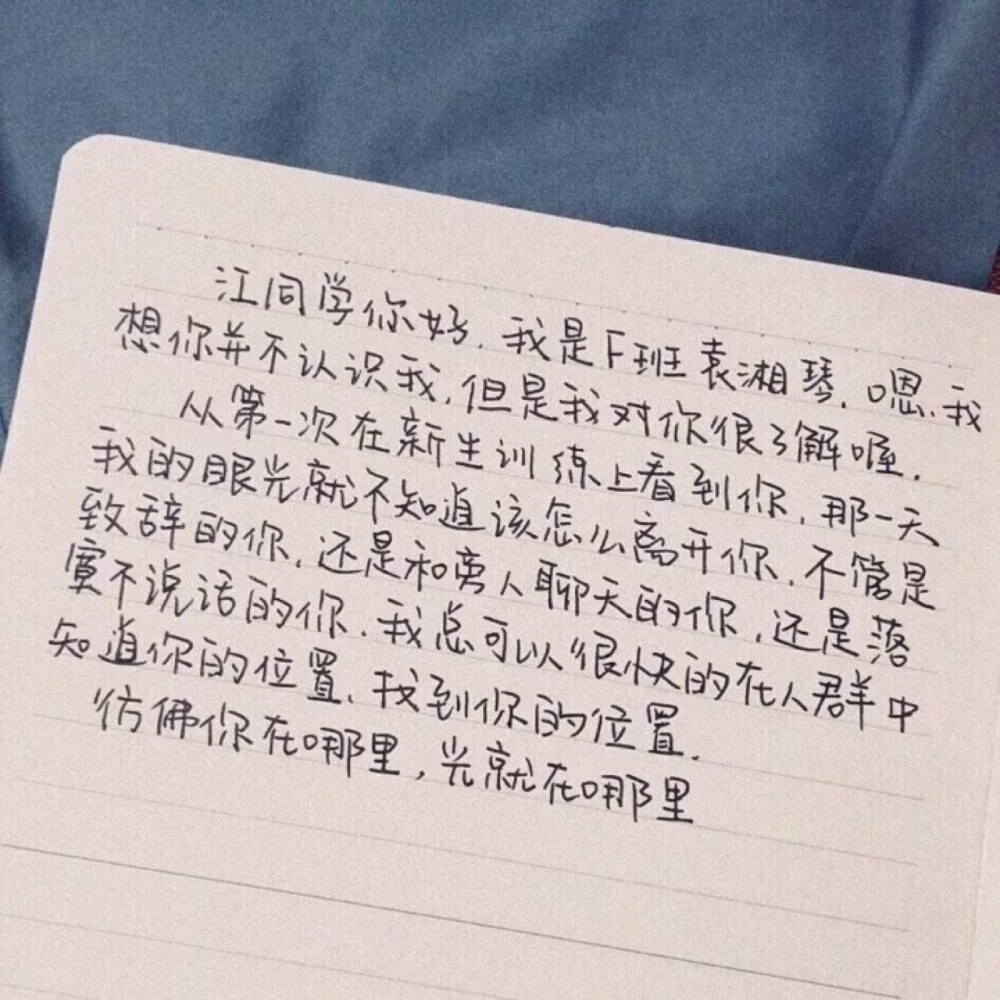 江同学你好.我是F班袁湘琴.嗯.我
想你并不认识我,但是我对你很了解喔.
从第一次在新生训练上看到你,那一天
我的眼光就不知道该怎么离开你.不管是
致辞的你,还是和旁人聊天的你,还是落
寞不说话的你.我总可以很快的在人群中
知道你的位置.找到你的位置.
仿佛你在哪里,光就在哪里